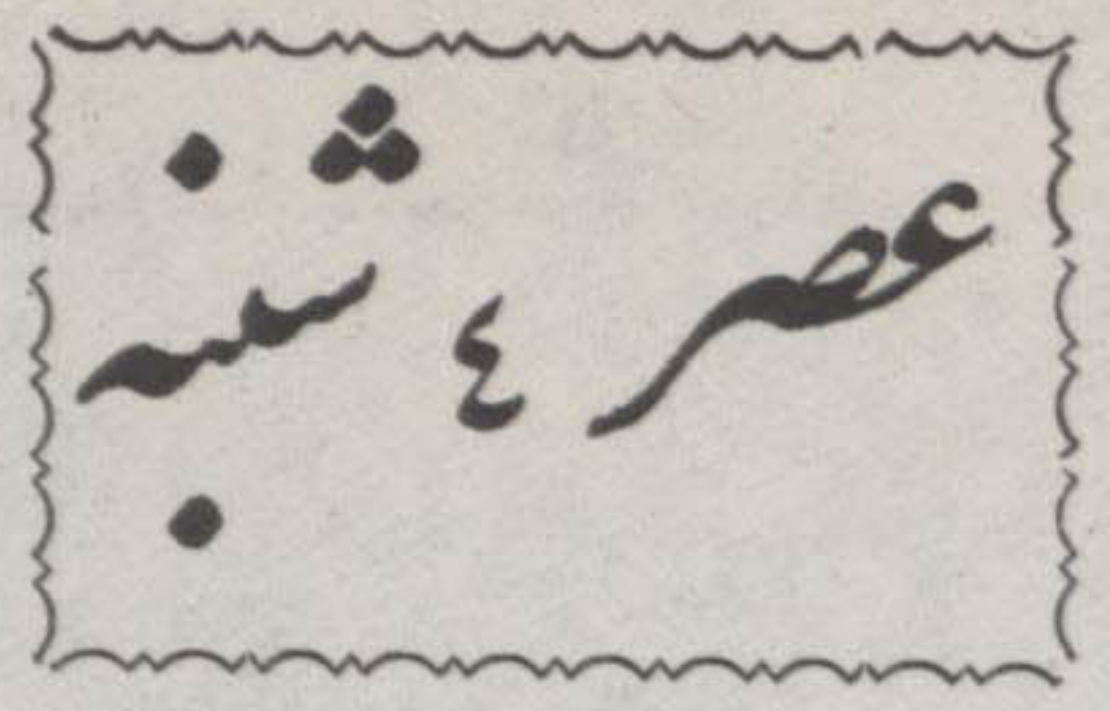 عصر ٤ شنبه